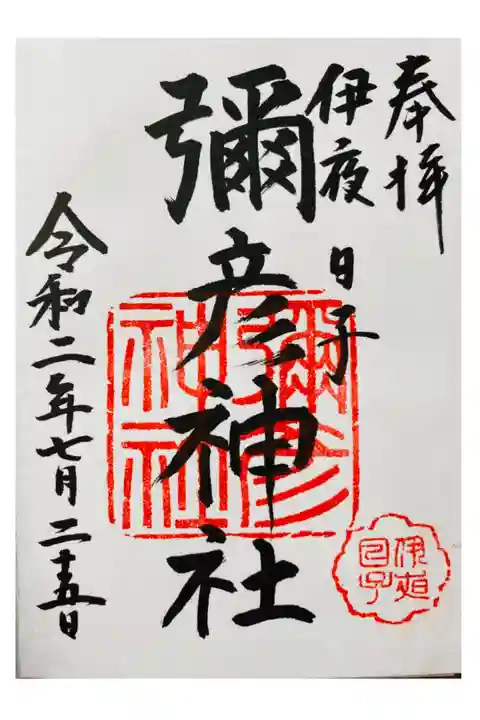 奉拝
伊夜日子
彌彦神社
令和二年七月二十五日
彌彦神社